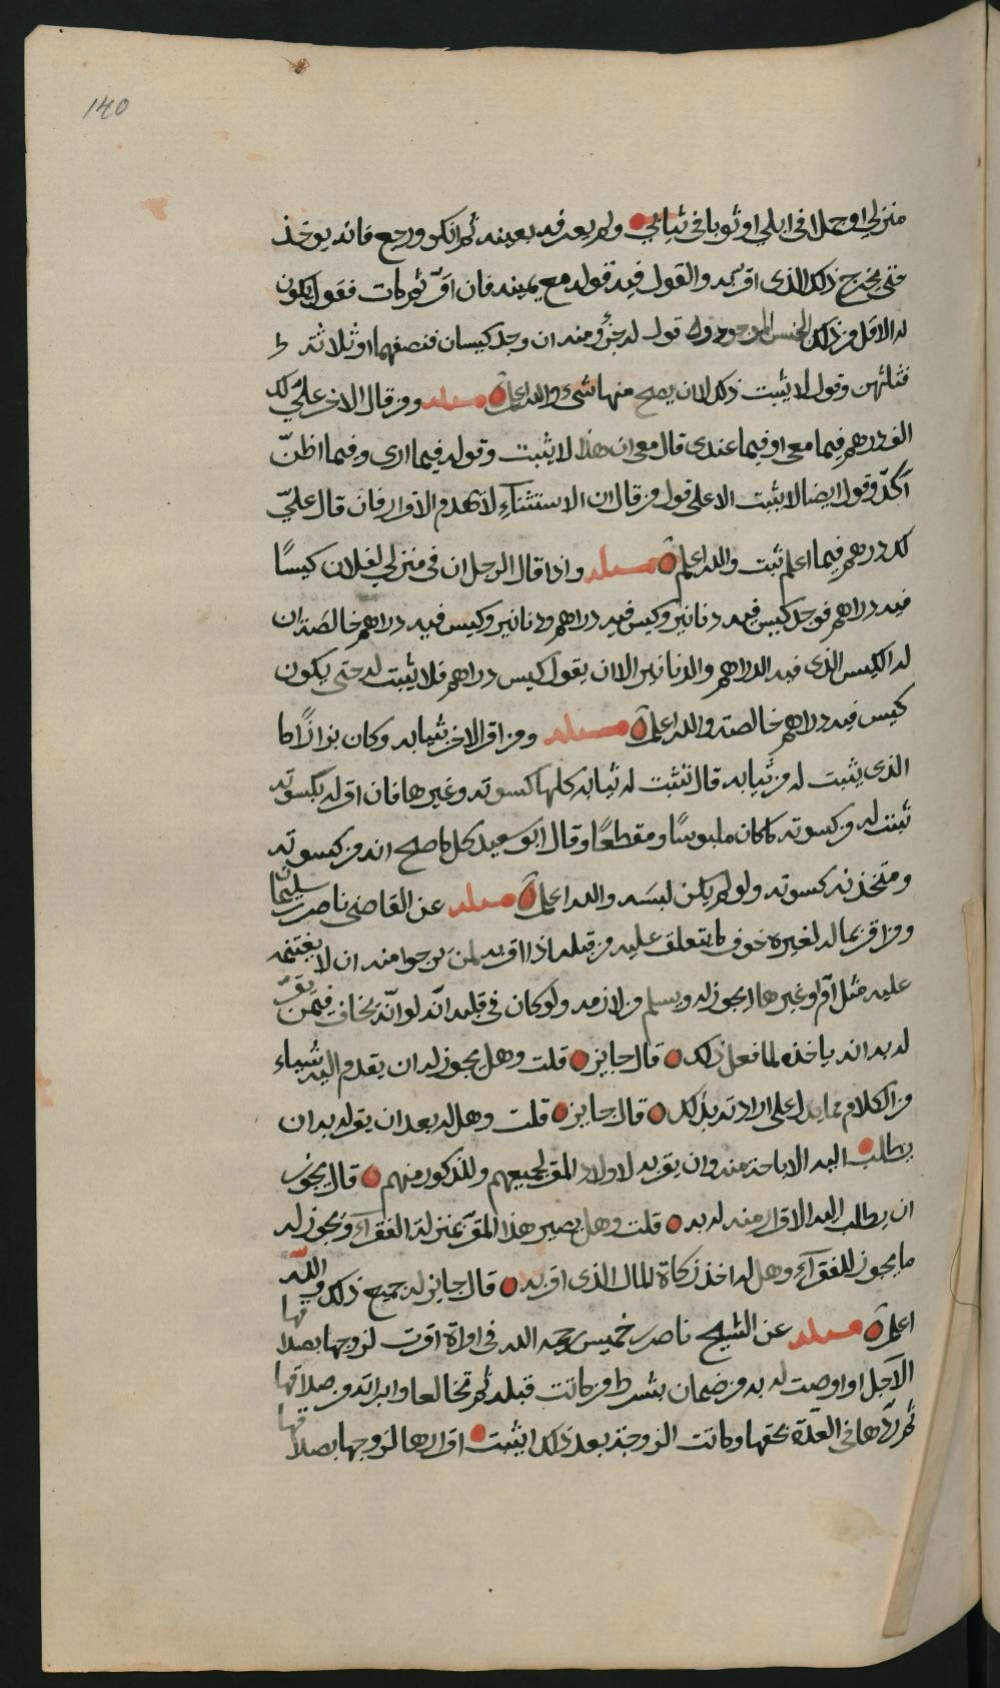 140
منزلي او جملا في ابلي او ثوبا في ثيابي ولم يعرفه بعينه ثم انكر ورجع فانه يوخذ
حتى يخرج ذلك الذي اقر به والقول فيه قوله مع يمينه فان اقر ثم مات فقول يكون
له الاقل من ذلك الجنس الموجود وله قول له جزؤ منه ان وجد كيسان فنصفهما او ثلاثة
فثلثهن وقول لا يثبت ذلك لان يصح منها شيء والله اعلم مسئلة ومن قال لاخر عليّ لك
الف درهم فيما معي او فيما عندي قال معي ان هذا لا يثبت وقوله فيما ارى وفيما اظنّ
آكدّ وقول ايضا لا يثبت الا على قول من قال ان الاستثناء لا يهدم الاقرار فان قال عليّ
لك درهم فيما اعلم ثبت والله اعلم مسئلة واذا قال الرجل ان في منزلي لفلان كيسًا
فيه دراهم فوجد كيس فيه دنانير وكيس فيه دراهم ودنانير وكيس فيه دراهم خالصة ان
له الكيس الذي فيه الدراهم والدنانير الا ان يقول كيس دراهم فلا يثبت له حتى يكون
كيس فيه دراهم خالصة والله اعلم مسئلة ومن اقر لاخر بثيابه وكان بزازًا ما
الذي يثبت له من ثيابه قال تثبت له ثيابه كلها كسوته وغيرها فان اقر له بكسوته
ثبتت له من كسوته ما كان ملبوسًا ومقطعًا وقال ابو سعيد كل ما صلح انه من كسوته
ومتخذ به كسوته ولو لم يكن لبسه والله اعلم مسئلة عن القاضي ناصر بن سليمان
ومن اقر بماله لغيره خوف ما يتعلق عليه من قبله اذا اقر به لمن يرجوا منه ان لا يغتنمه
عليه مثل امرأة وغيرها ايجوز له ويسلم من لازمه ولو كان في قلبه انه لو انّه يخاف فيمن يقرّ
له به انه ياخذه لما فعل ذلك قال جايز قلت وهل يجوز له ان يقدم اليه شياء
من الكلام مما يدل على ارادته بذلك قال جايز قلت وهل له بعد ان يقر له به ان
يطلب اليه الاباحة منه وان يقر به لاولاد المقر لجميعهم وللذكور منهم قال يجوز
ان يطلب اليه الاقرار منه له به قلت وهل يصير هذا المقرّ بمنزلة الفقراء ويجوز له
ما يجوز للفقراء وهل له اخذ زكاة المال الذي اقر به قال جايز له جميع ذلك والله
اعلم مسئلة عن الشيخ ناصر بن خميس رحمه الله في امراة اقرت لزوجها بصداقها
الآجل او اوصت له به من ضمان بشرط من كانت قبله ثم تخالعا وابراته من صداقها
ثم ردّها في العدّة بحقها وماتت الزوجة بعد ذلك ايثبت اقرارها لزوجها بصداقها